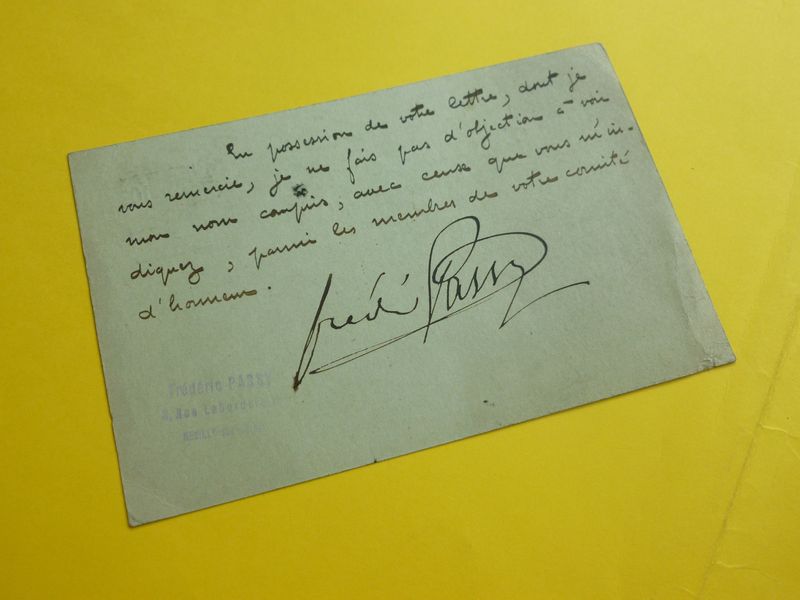 En possession de votre lettre, dont je
vous remercie, je ne fais pas d'objection à voir
mon nom compris, avec ceux que vous m'in-
diquez, parmi les membres de votre comité
d'honneur.
Frédéric Passy
Frédéric PASSY
8, Rue Labordère
NEUILLY